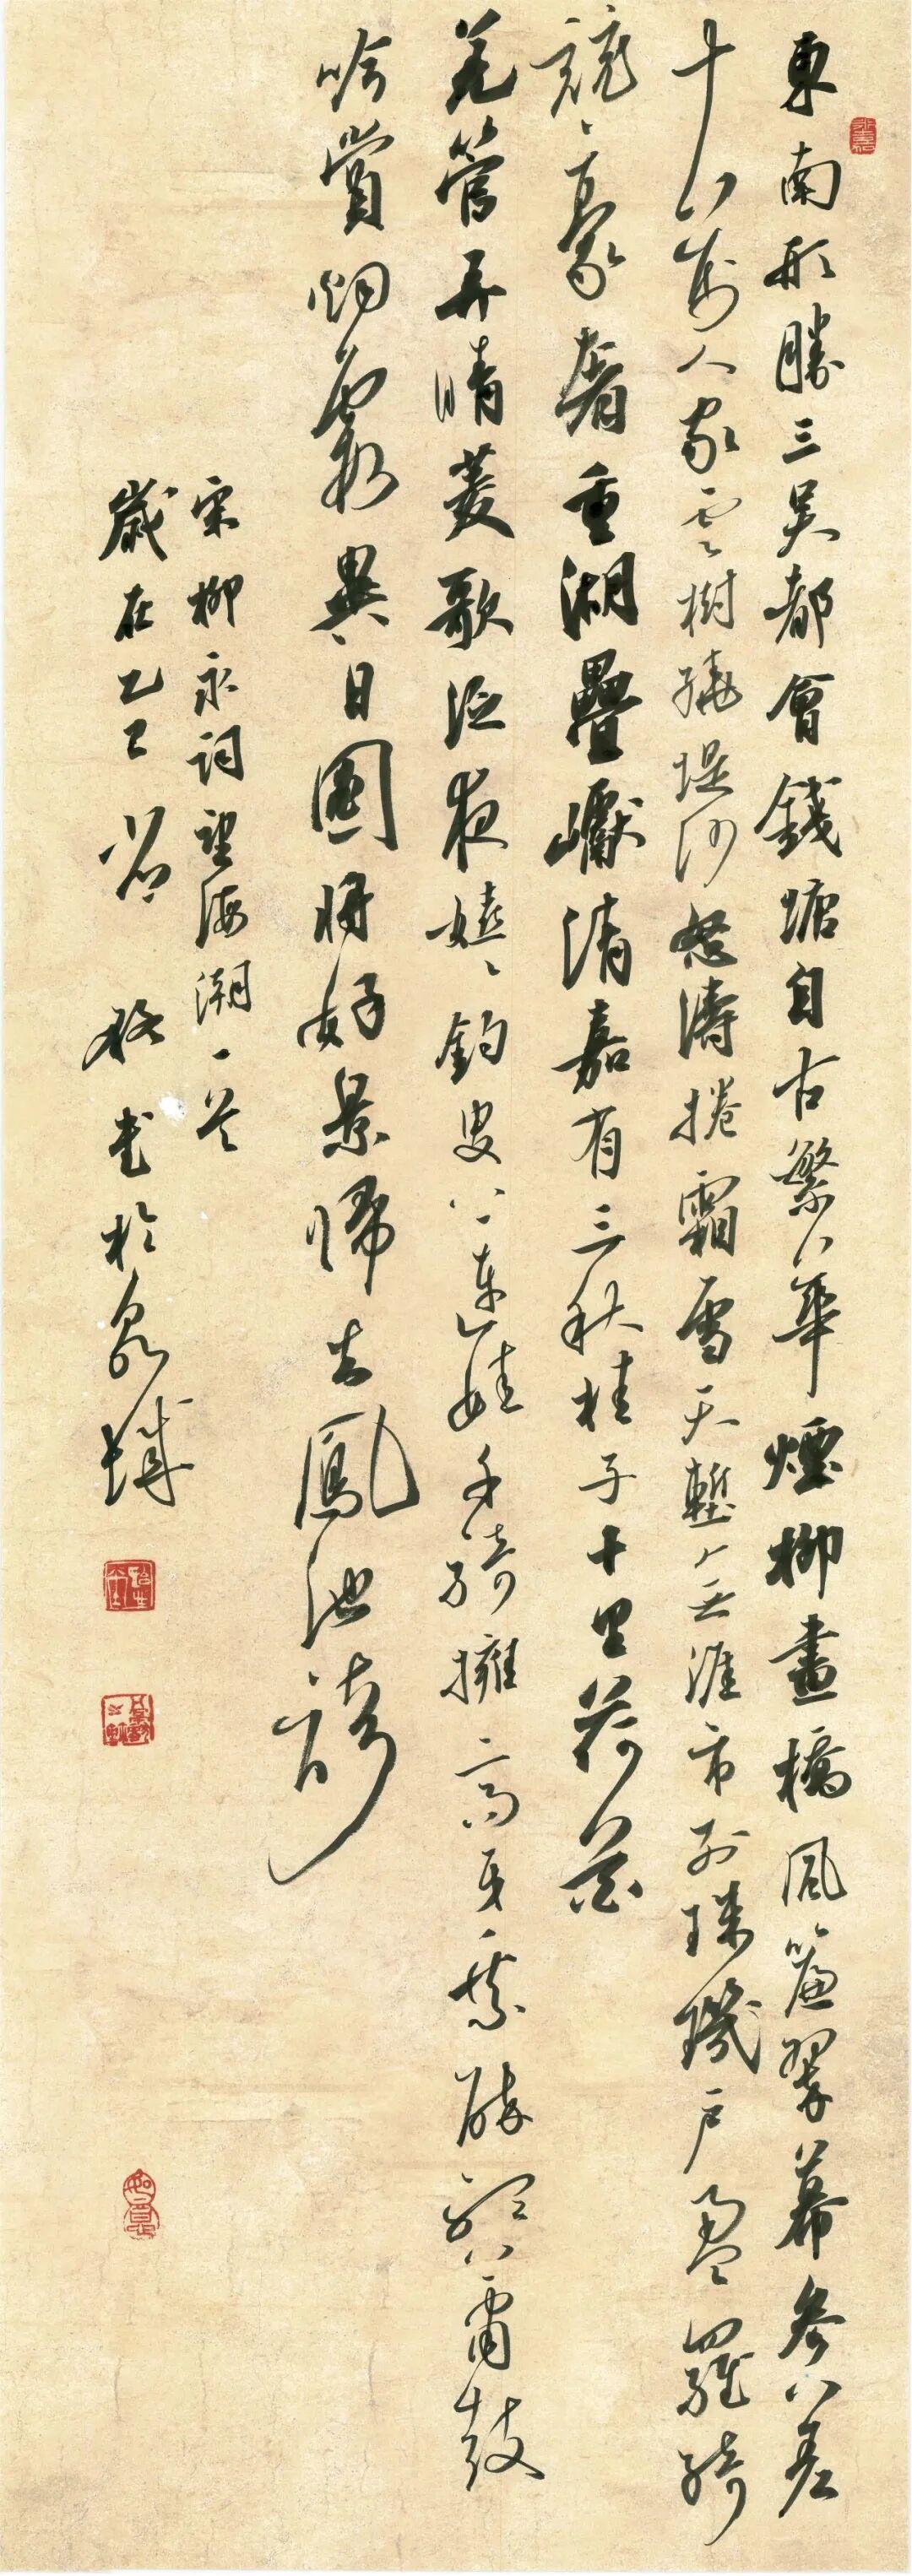 東南形勝三吳都會錢塘自古繁華煙柳畫橋風簾翠幕參差
十萬人家雲樹繞堤沙怒濤捲霜雪天塹無涯市列珠璣戶盈羅綺
競豪奢重湖疊巘清嘉有三秋桂子十里荷花
羌管弄晴菱歌泛夜嬉〻釣叟蓮娃千騎擁高牙乘醉聽簫鼓
吟賞烟霞異日圖將好景歸去鳳池誇
宋柳永詞望海潮一首
歲在乙巳書於泉城
如意